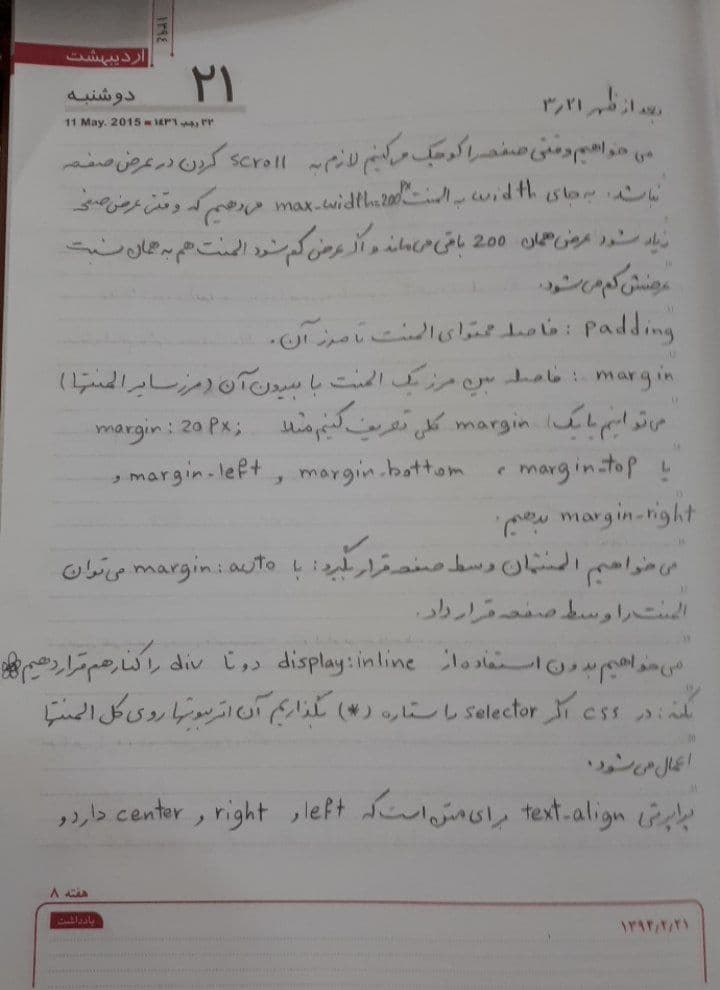 ۱۳۹٤
اردیبهشت
۲۱
دوشنبه
11 May. 2015 ■ ۲۲ رجب ۱٤۳٦
بعد از ظهر ۳٫۲۱
می خواهیم وقتی صفحه را کوچک می کنیم لازم به scroll کردن در عرض صفحه
نباشد. به جای width به المنت max-width=200px می دهیم که وقتی عرض صفحه
زیاد شود عرض همان 200 باقی می ماند و اگر عرض کم شود المنت هم به همان نسبت
عرضش کم می شود.
padding : فاصله محتوای المنت تا مرز آن.
margin : فاصله بین مرز یک المنت با بیرون آن (مرز سایر المنتها)
می توانیم با یک margin کلی تعریف کنیم مثلا margin: 20px;
یا margin-top ، margin-bottom و margin-left و
margin-right بدهیم.
می خواهیم المنتمان وسط صفحه قرار بگیرد: با margin:auto می توان
المنت را وسط صفحه قرار داد.
می خواهیم بدون استفاده از display:inline دو تا div را کنار هم قرار دهیم
نکته: در css اگر selector را ستاره (*) بگذاریم آن اتریبیوتها روی کل المنتها
اعمال می شود.
پراپرتی text-align برای متن است که left و right و center دارد و
هفته ۸
یادداشت
۱۳۹۴/۲/۲۱